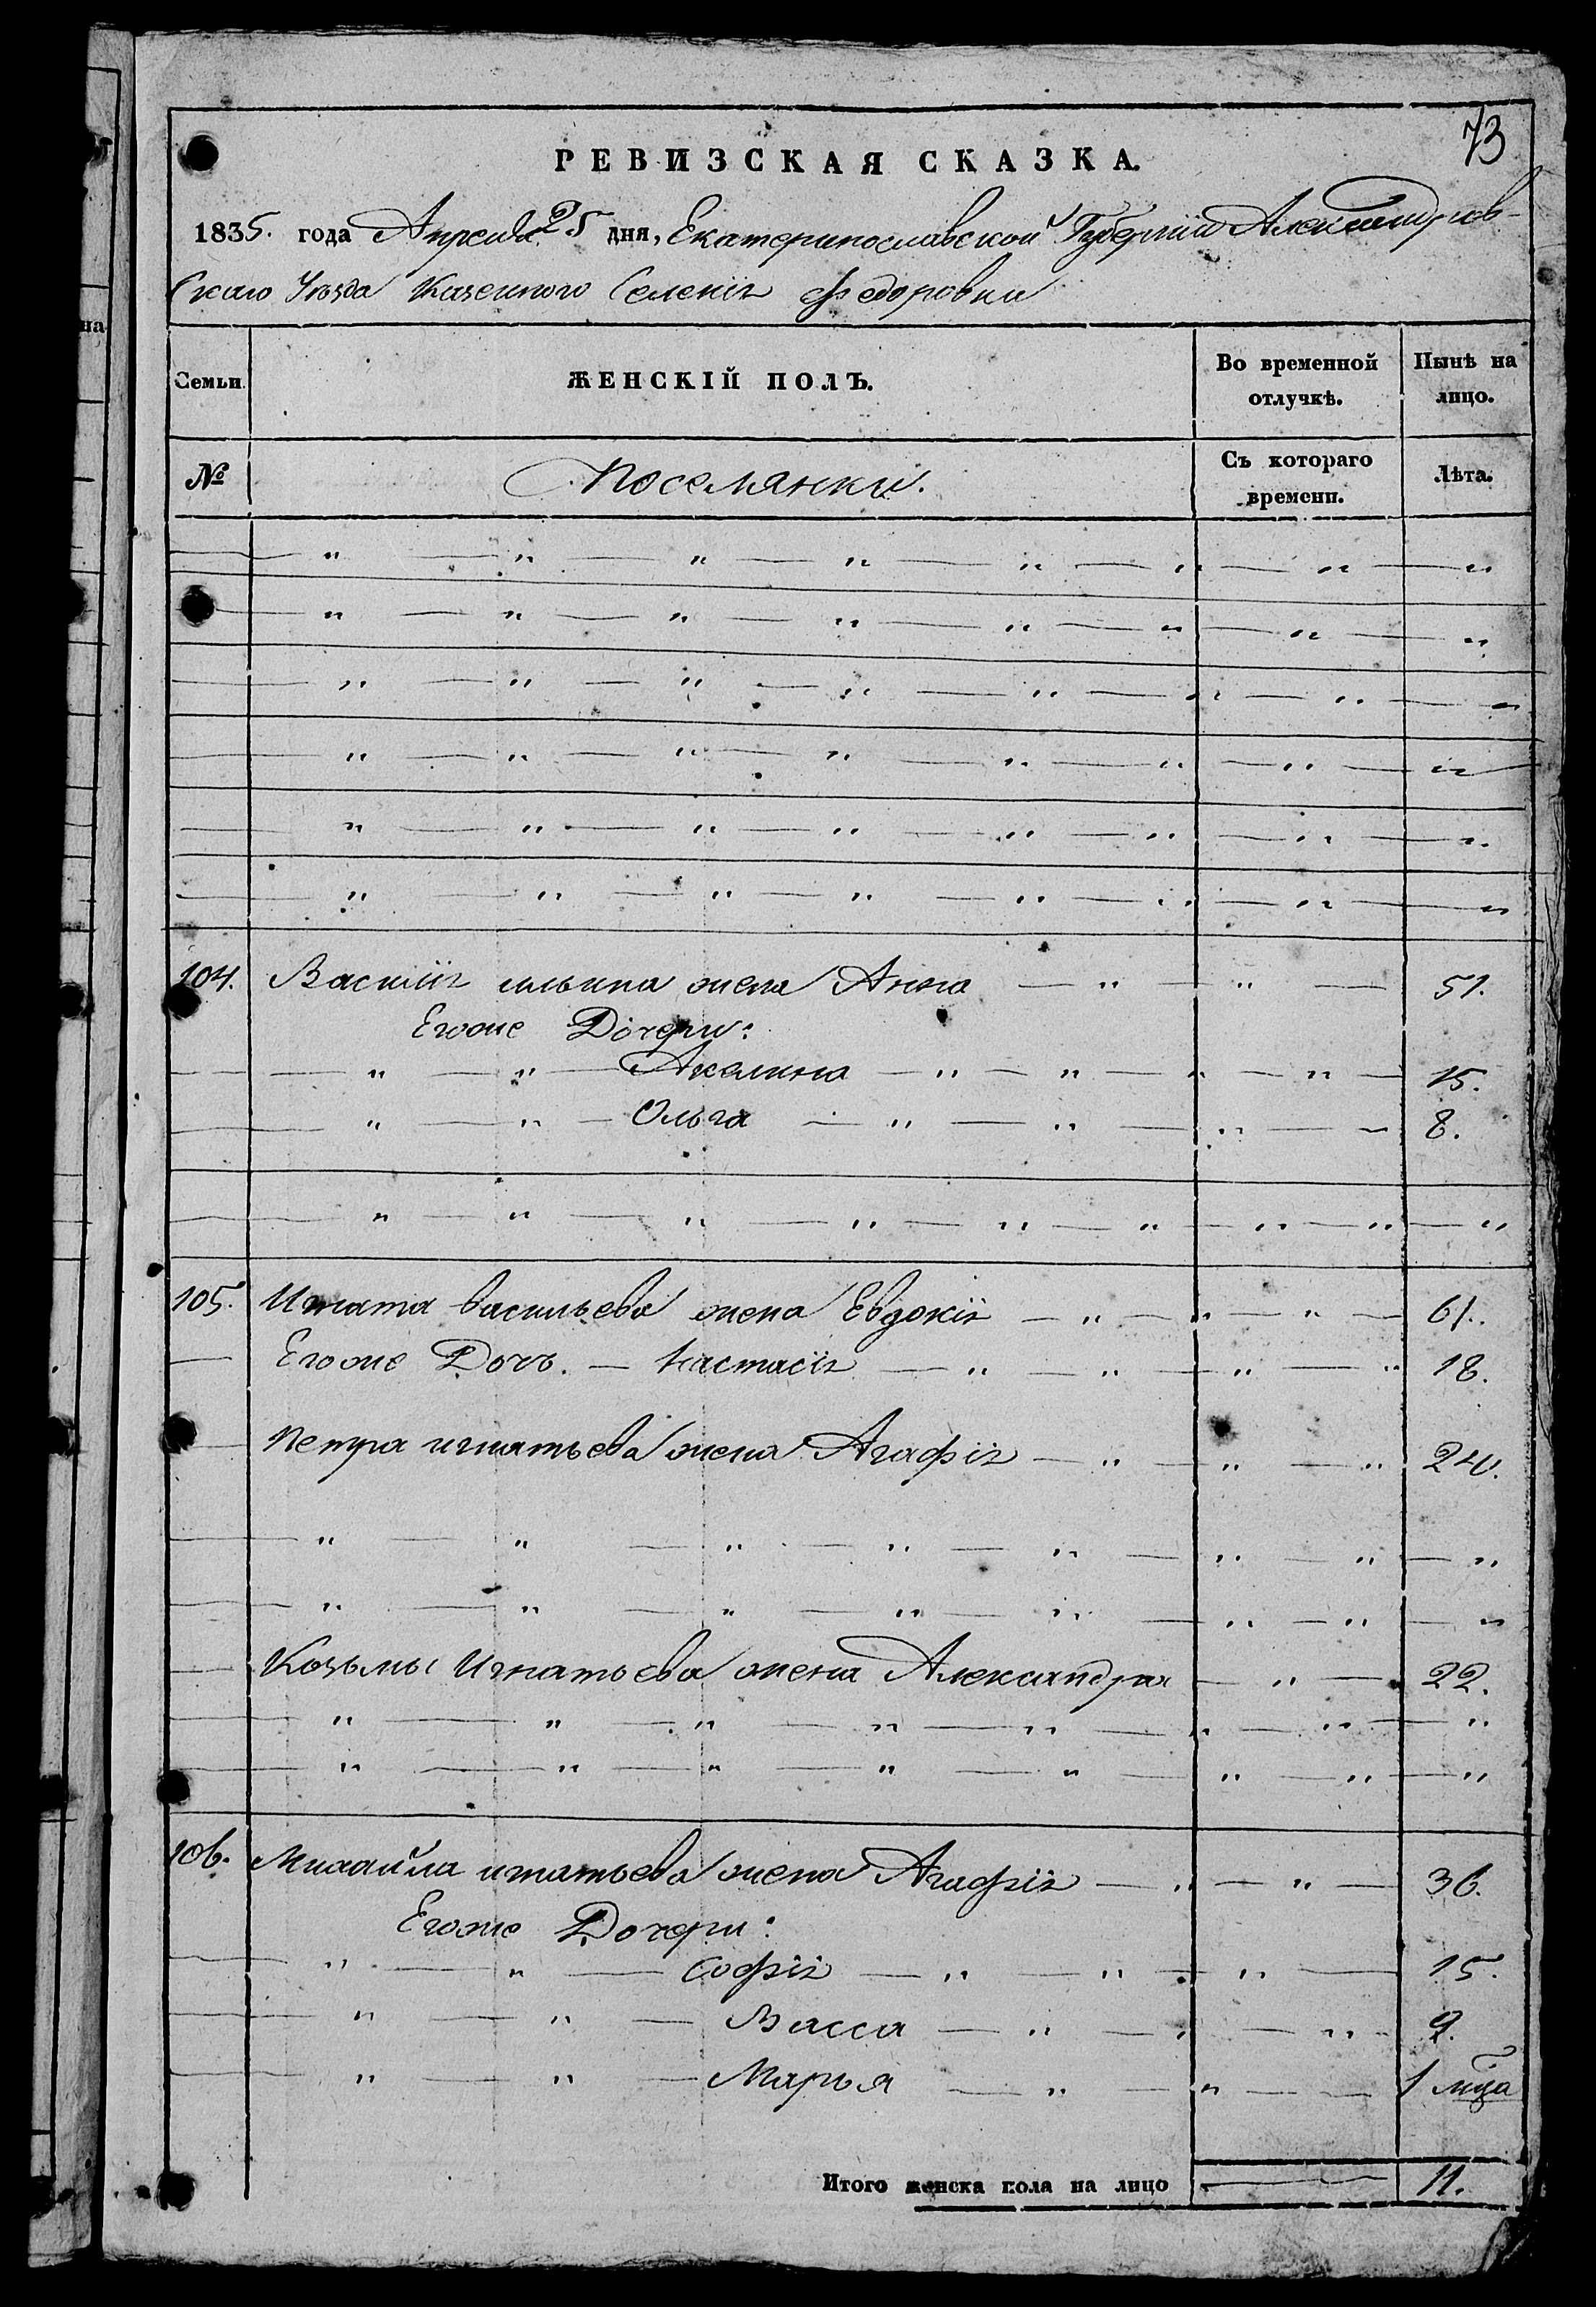 73
РЕВИЗСКАЯ СКАЗКА.
1835. года Апреля 25 дня, Екатеринославской Губерніи Александров-
скаго Уѣзда Казенного Селенія Федоровки
Семьи. ЖЕНСКІЙ ПОЛЪ. Во временной отлучкѣ. Нынѣ на лицо.
№ Поселянки. Съ котораго времени. Лѣта.
104. Василія ильина жена Анна 51.
Егоже Дочери:
Акелина 15.
Ольга 8.
105. Игната васильева жена Евдокія 61.
Егоже Дочь. Настасія 18.
Петра игнатьева жена Агафія 24.
Козьмы Игнатьева жена Александра 22.
106. Михайла игнатьева жена Агафія 36.
Егоже Дочери:
Софія 15.
Васса 9.
Марья 1 мца
Итого женска пола на лицо 11.